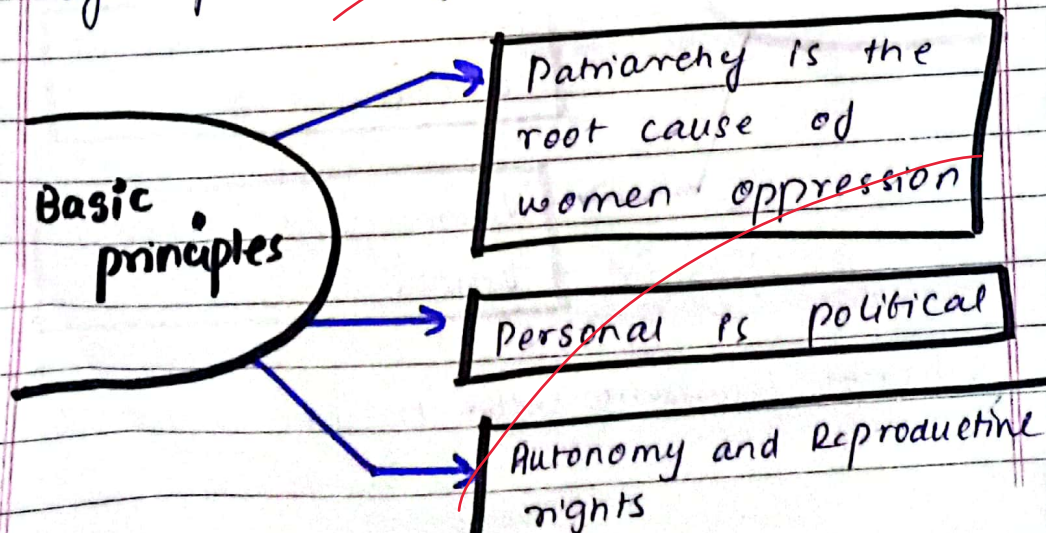 Basic
principles
Patriarchy is the
root cause of
women oppression
Personal is political
Autonomy and Reproductive
rights